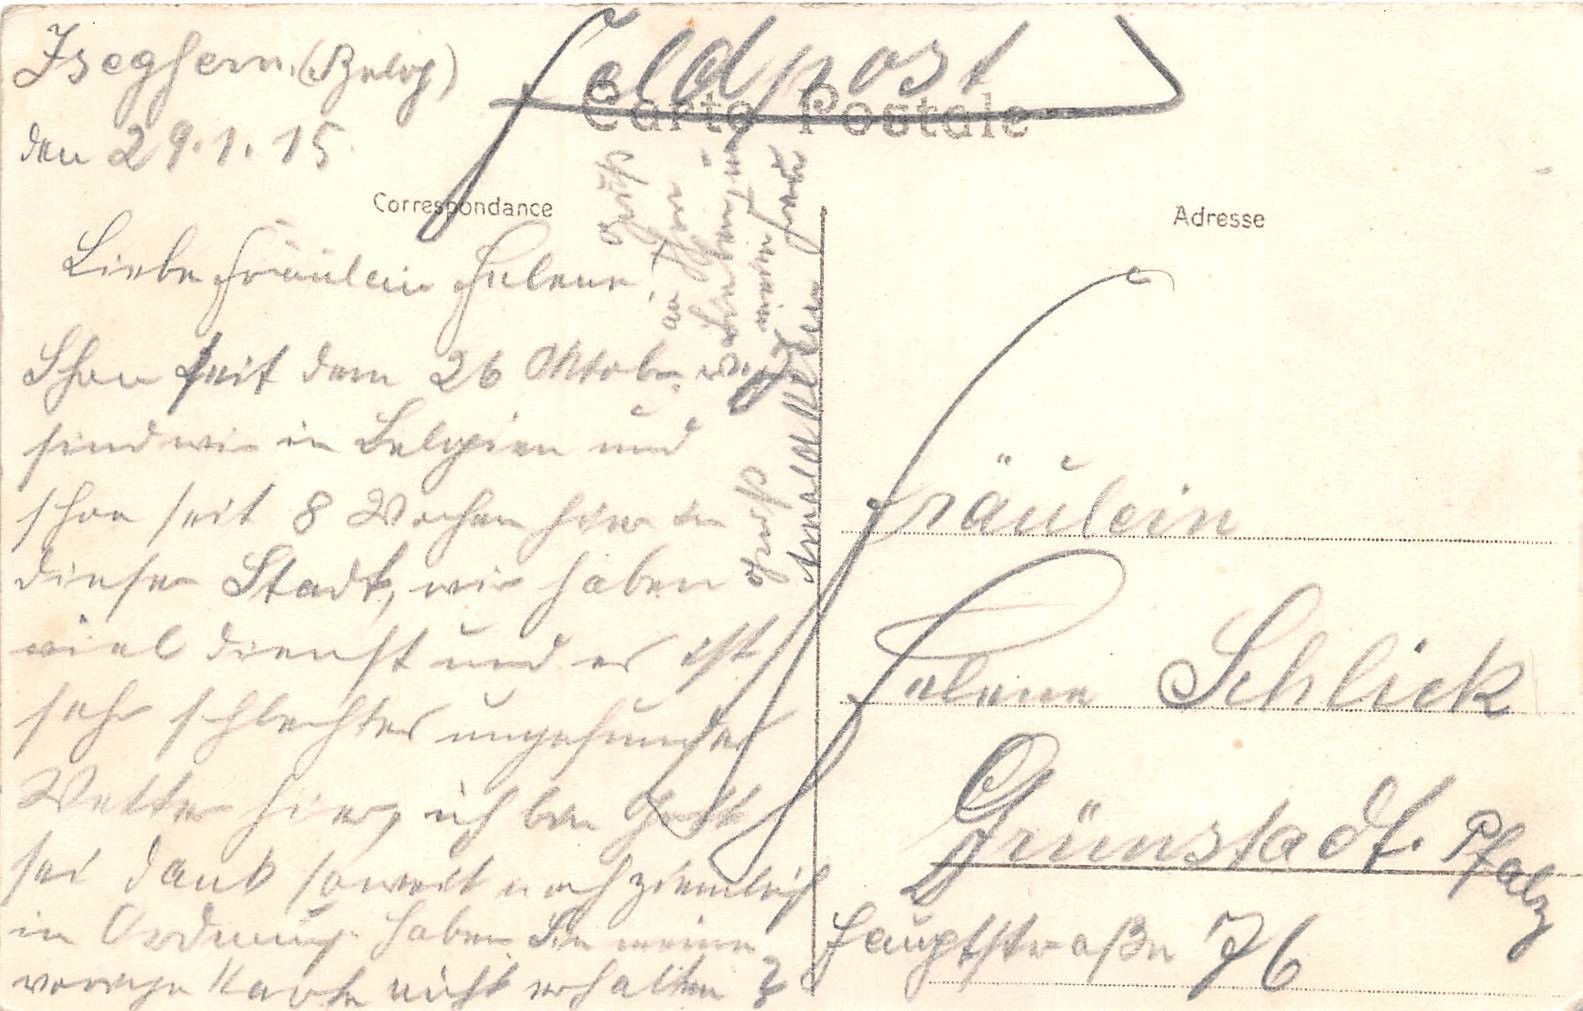 Feldpost
Carte Postale
Iseghem (Belg)
den 29.1.15.
Correspondance
Adresse
Liebe Fräulein Helene!
Schon seit dem 26 Oktob.
sind wir in Belgien und
schon seit 8 Wochen hier in
dieser Stadt, wir haben
viel Dienst und es ist
sehr schlechtes ungesundes
Wetter hier, ich bin Gott
sei dank soweit noch ziemlich
in Ordnung. Haben Sie meine
vorige Karte nicht erhalten?
Gruß
an Ihn
meine Frau
Gruß
Fräulein
Helene Schlick
Grünstadt. Pfalz
Hauptstraße 76